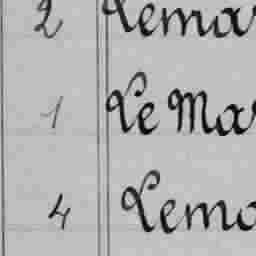 2 Lemar
1 Le Mar
4 Lemo